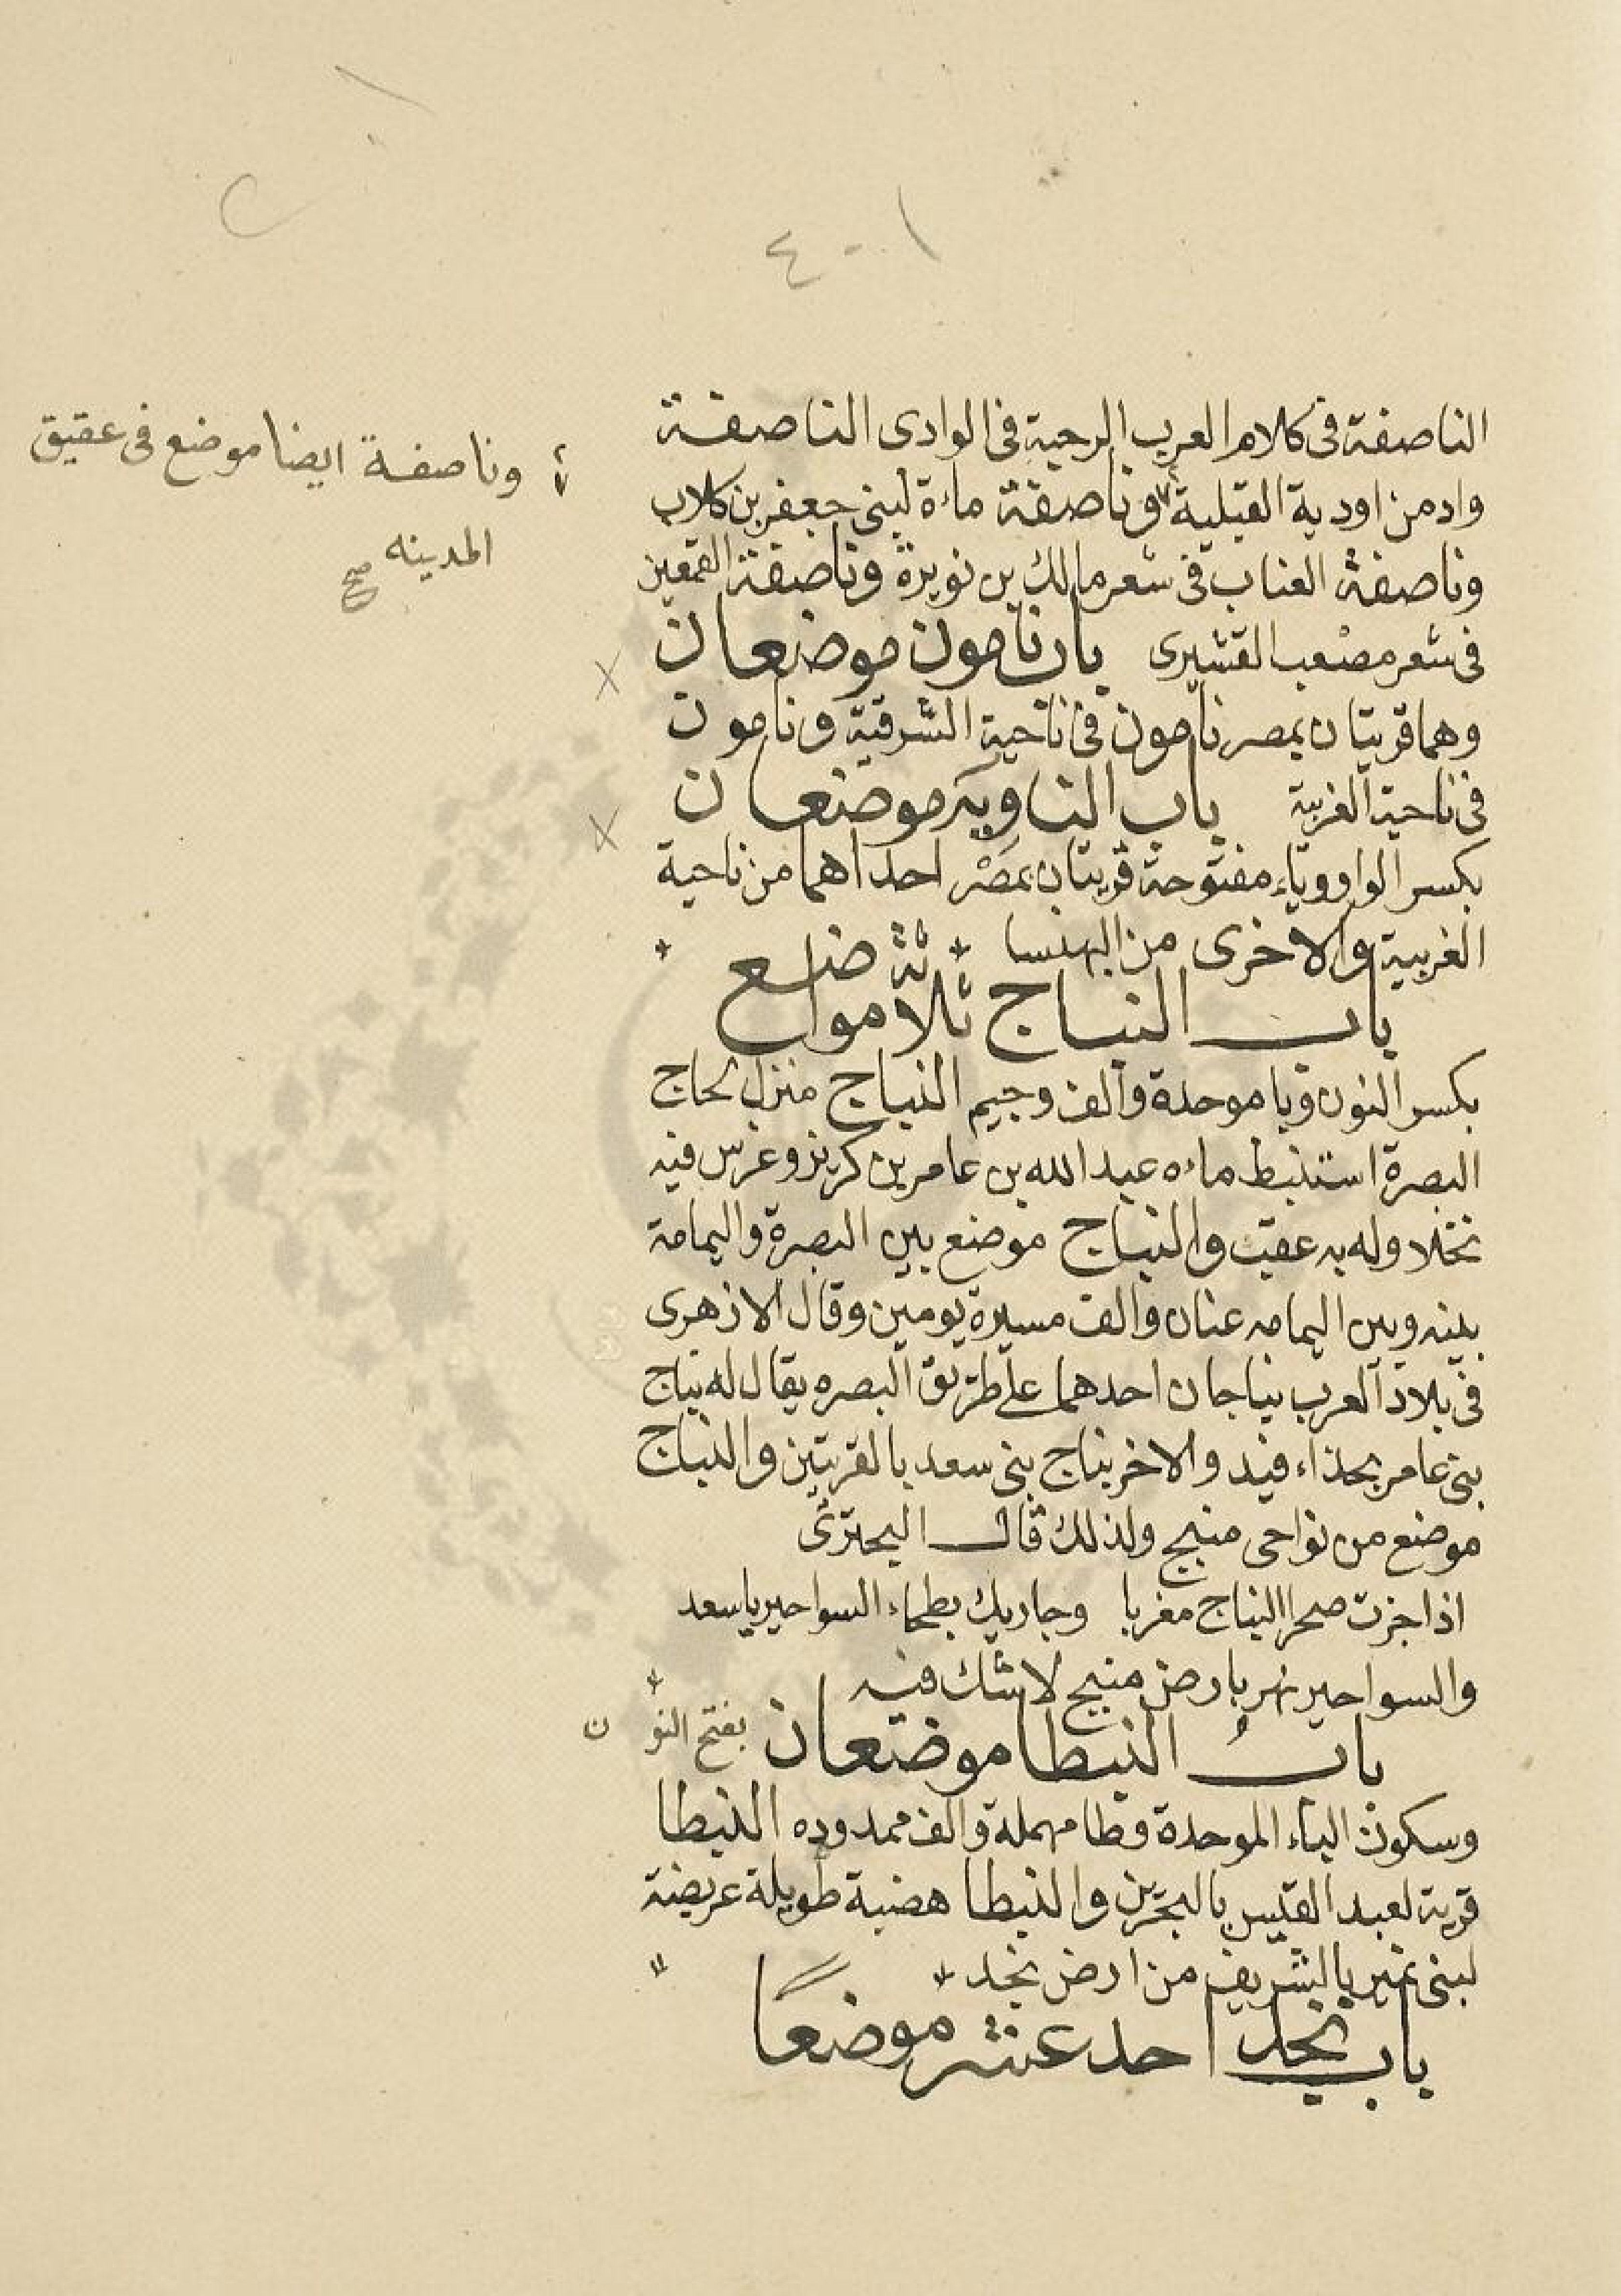 ٤٠١
الناصفة فى كلام العرب الرحبة فى الوادى الناصفة
واد من اودية القبلية وناصفة ماءة لبنى جعفر بن كلاب
وناصفة ايضا موضع فى عقيق
المدينه صح
وناصفة العناب فى شعر مالك بن نويرة وناصفة القمعين
فى شعر مصعب القشيرى باب نامون موضعان
وهما قريتان بمصر نامون فى ناحية الشرقية ونامون
فى ناحية الغربية باب الناويه موضعان
بكسر الواو وياء مفتوحة قريتان بمصر احداهما من ناحية
الغربية والاخرى من البهنسا
باب النباج ثلاثة مواضع
بكسر النون وبا موحدة والف وجيم النباج منزل لحاج
البصرة استنبط ماءه عبد الله بن عامر بن كريز وغرس فيه
نخلا وله به عقب والنباج موضع بين البصرة واليمامة
بينه وبين اليمامه عنان والف مسيرة يومين وقال الازهرى
فى بلاد العرب نباجان احدهما على طريق البصره يقال له نباج
بنى عامر بحذاء فيد والاخر نباج بنى سعد بالقريتين والنباج
موضع من نواحى منبج ولذلك قال البحترى
اذا جزت صحرا النباج مغربا وجاريك بطحاء السواحير يا سعد
والسواحير نهر بارض منبج لا شك فيه
باب النبطا موضعان بفتح النون
وسكون الباء الموحدة وطا مهملة والف ممدوده النبطا
قرية لعبد القيس بالبحرين والنبطا هضبة طويلة عريضة
لبنى نمير بالشريف من ارض نجد
باب نجد احد عشر موضعًا